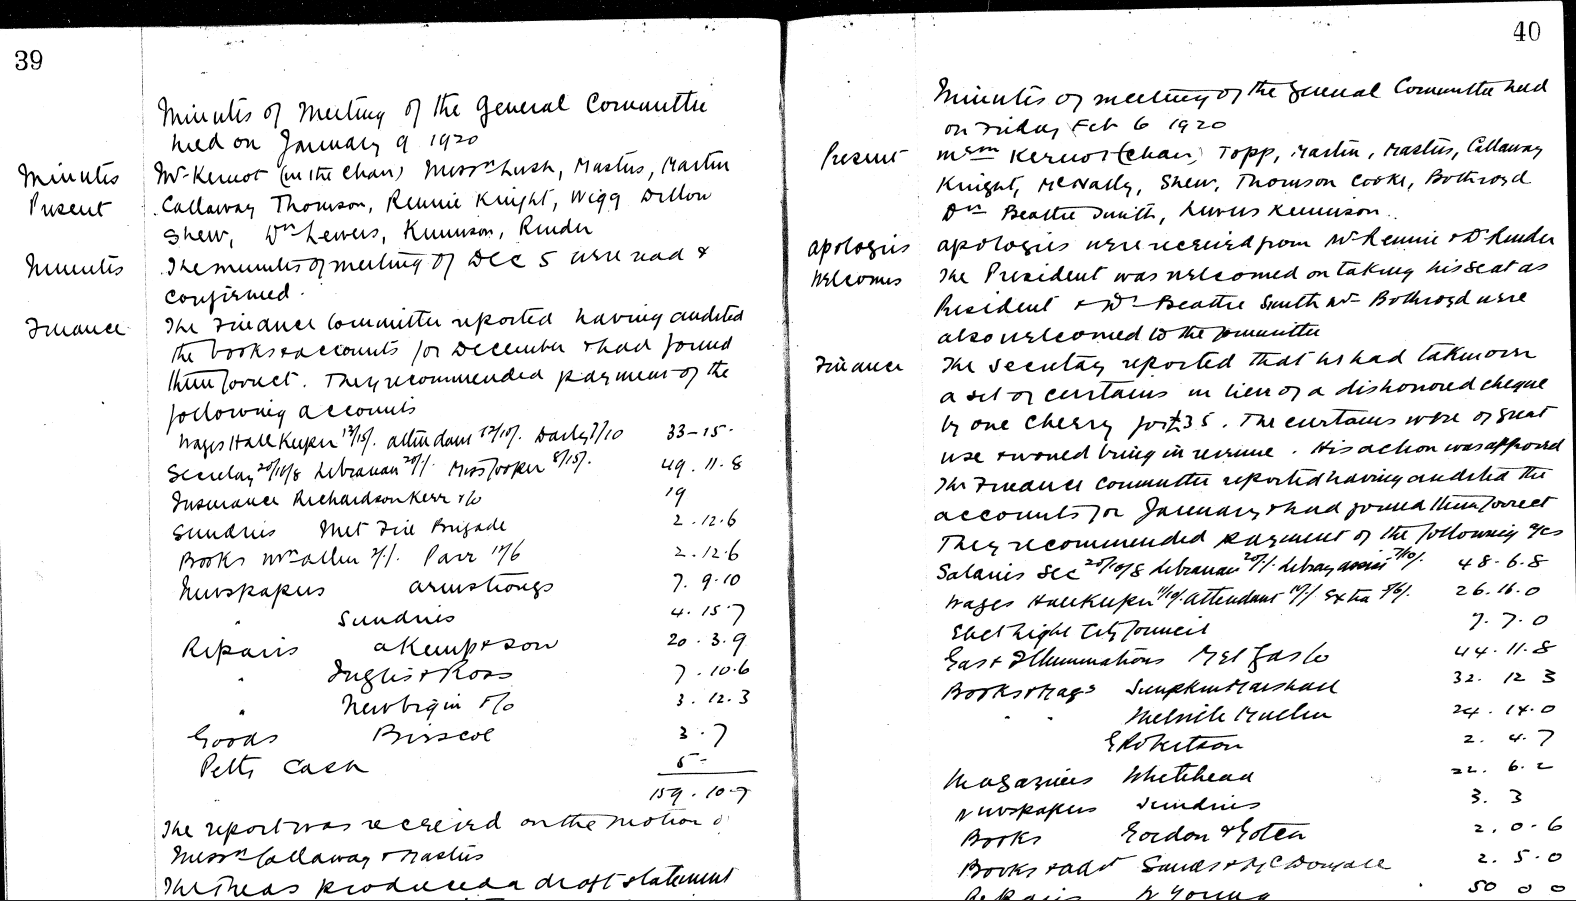 39
Minutes of Meeting of the General Committee
held on January 9 1920
Minutes
Present
Mr Kernot (in the Chair) Messrs Lush, Masters, Martin
Callaway Thomson, Rennie Knight, Wigg Dillon
Shew, Drs Lewers, Kennison, Render
Minutes
The minutes of meeting of Dec 5 were read &
confirmed.
Finance
The Finance Committee reported having audited
the books & accounts for December & had found
them correct. They recommended payment of the
following accounts
Wages Hall Keeper attendant 33-15-
Secretary 20/16/8 Librarian Miss Cooper 8/15/- 49.11.8
Insurance Richardson Kerr & Co 19
Sundries Met Fire Brigade 2.12.6
Books Parr 2.12.6
Newspapers Armstrongs 7.9.10
" Sundries 4.15.7
Repairs A Kemp & Son 20.3.9
" Inglis & Ross 7.10.6
" Newbigin & Co 3.12.3
Goods Briscoe 3.7
Petty Cash 5-
159.10.7
The report was received on the motion of
Messrs Callaway & Masters
The Treas produced a draft statement
40
Minutes of meeting of the General Committee held
on Friday Feb 6 1920
Present
Messrs Kernot (Chair) Topp, Martin, Masters, Callaway
Knight, McNally, Shew, Thomson Cooke, Bothroyd
Drs Beattie Smith, Lewers Kennison.
Apologies
Apologies were received from Mr Rennie & Dr Render
Welcomes
The President was welcomed on taking his seat as
President & Dr Beattie Smith Mr Bothroyd were
also welcomed to the Committee
Finance
The Secretary reported that he had taken over
a set of curtains in lieu of a dishonored cheque
by one Cherry for £35. The curtains were of great
use & would bring in revenue. His action was approved
The Finance Committee reported having audited the
accounts for January & had found them correct
They recommended payment of the following a/cs
Salaries Sec 20/16/8 Librarian 20/- Library assist 7/10/- 48.6.8
Wages Hall Keeper Attendant Extra 26.16.0
Elect Light City Council 7.7.0
Gas & Illuminations Met Gas Co 44.11.8
Books & Mags Simpkin Marshall 32.12 3
" " Melville Mullen 24.14.0
E Robertson 2.4.7
Magazines Whitehead 22.6.2
Newspapers Sundries 3.3
Books Gordon & Gotch 2.0.6
Books & advt Sands & McDougall 2.5.0
Repairs W Young 50 0 0